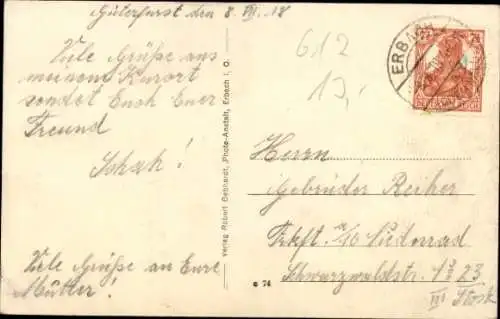 den 8. VII. 18
Viele Grüße aus
meinem Kurort
sendet Euch Euer
Freund
Schah!
Viele Grüße an Eure
Mutter!
Verlag Robert Gebhardt, Photo-Anstalt, Erbach i. O.
✱ 74
612
13,-
ERBACH
Herrn
Gebrüder Reiher
Frkft. a/M Niederrad
Schwarzwaldstr. 23
III Stock